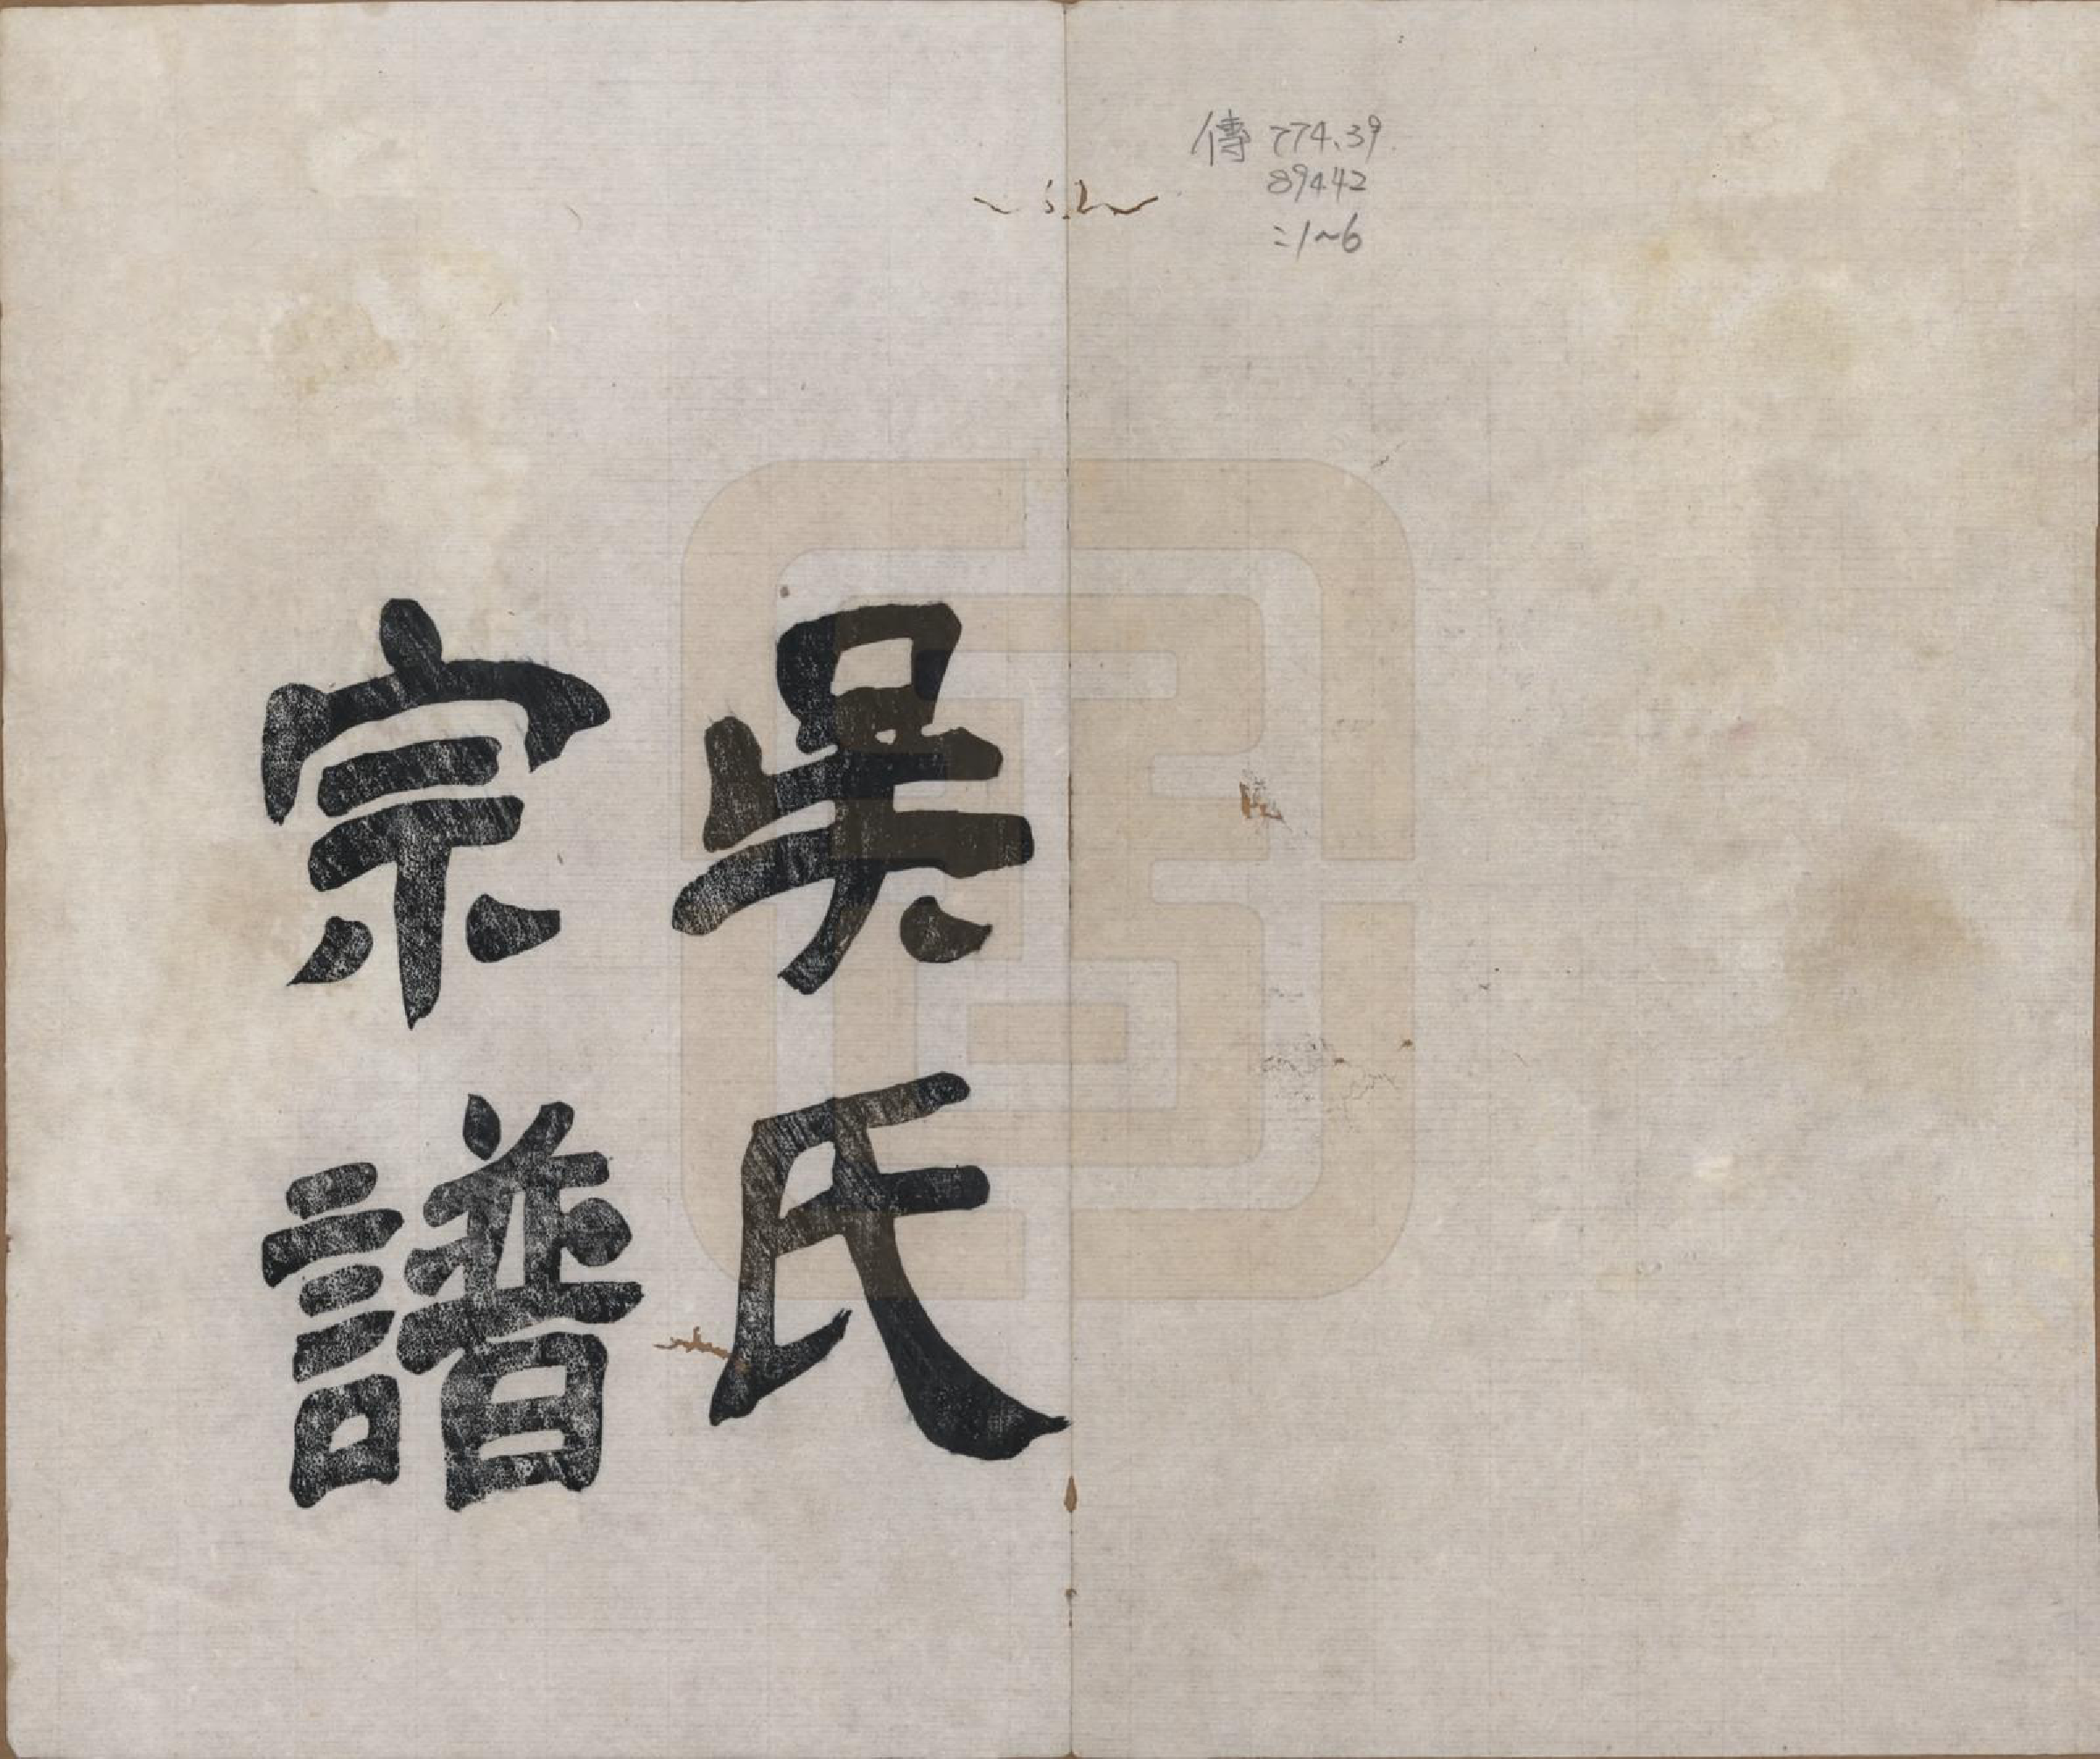 傳 774.39
89442
:1~6
吳氏
宗譜